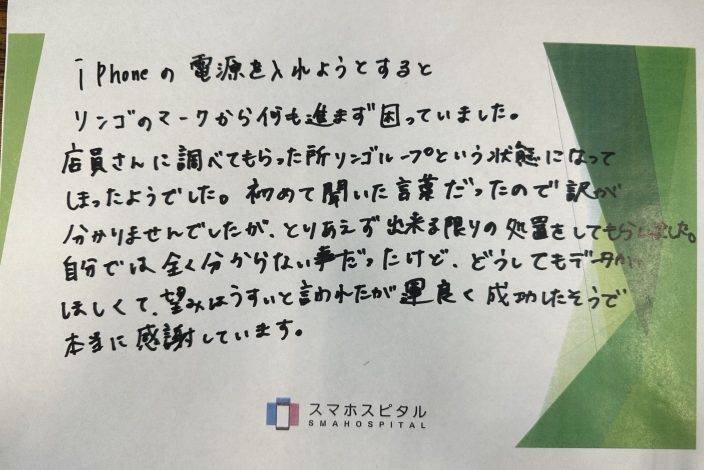 iPhoneの電源を入れようとすると
リンゴのマークから何も進まず困っていました。
店員さんに調べてもらった所リンゴループという状態になって
しまったようでした。初めて聞いた言葉だったので訳が
分かりませんでしたが、とりあえず出来る限りの処置をしてもらいました。
自分では全く分からない事だったけど、どうしてもデータが
ほしくて、望みはうすいと言われたが運良く成功したそうで
本当に感謝しています。
スマホスピタル
SMAHOSPITAL